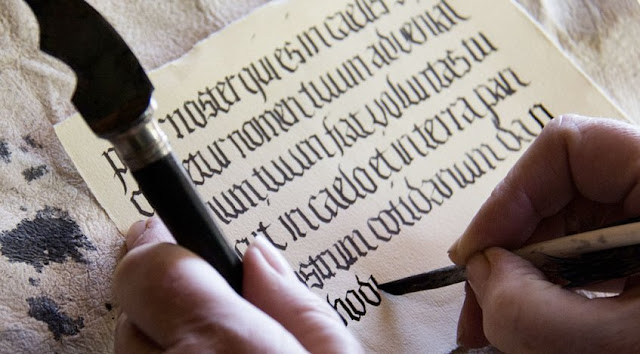 noster qui es in caelis
etur nomen tuum adveniat
num tuum fiat voluntas tu
cut in caelo et in terra pan
strum cotidianum da n
hodi